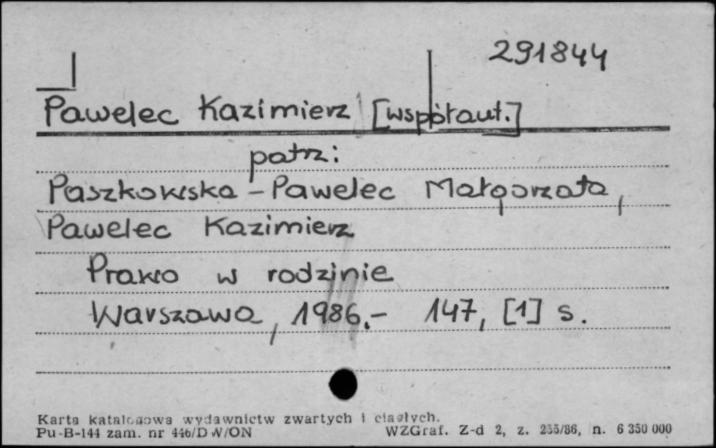 291844
Pawelec Kazimierz [współaut.]
patrz:
Paszkowska-Pawelec Małgorzata,
Pawelec Kazimierz
Prawo w rodzinie
Warszawa, 1986.- 147, [1] s.
Karta katalogowa wydawnictw zwartych i ciągłych.
Pu-B-144 zam. nr 446/DW/ON WZGraf. Z-d 2, z. 255/86, n. 6 350 000